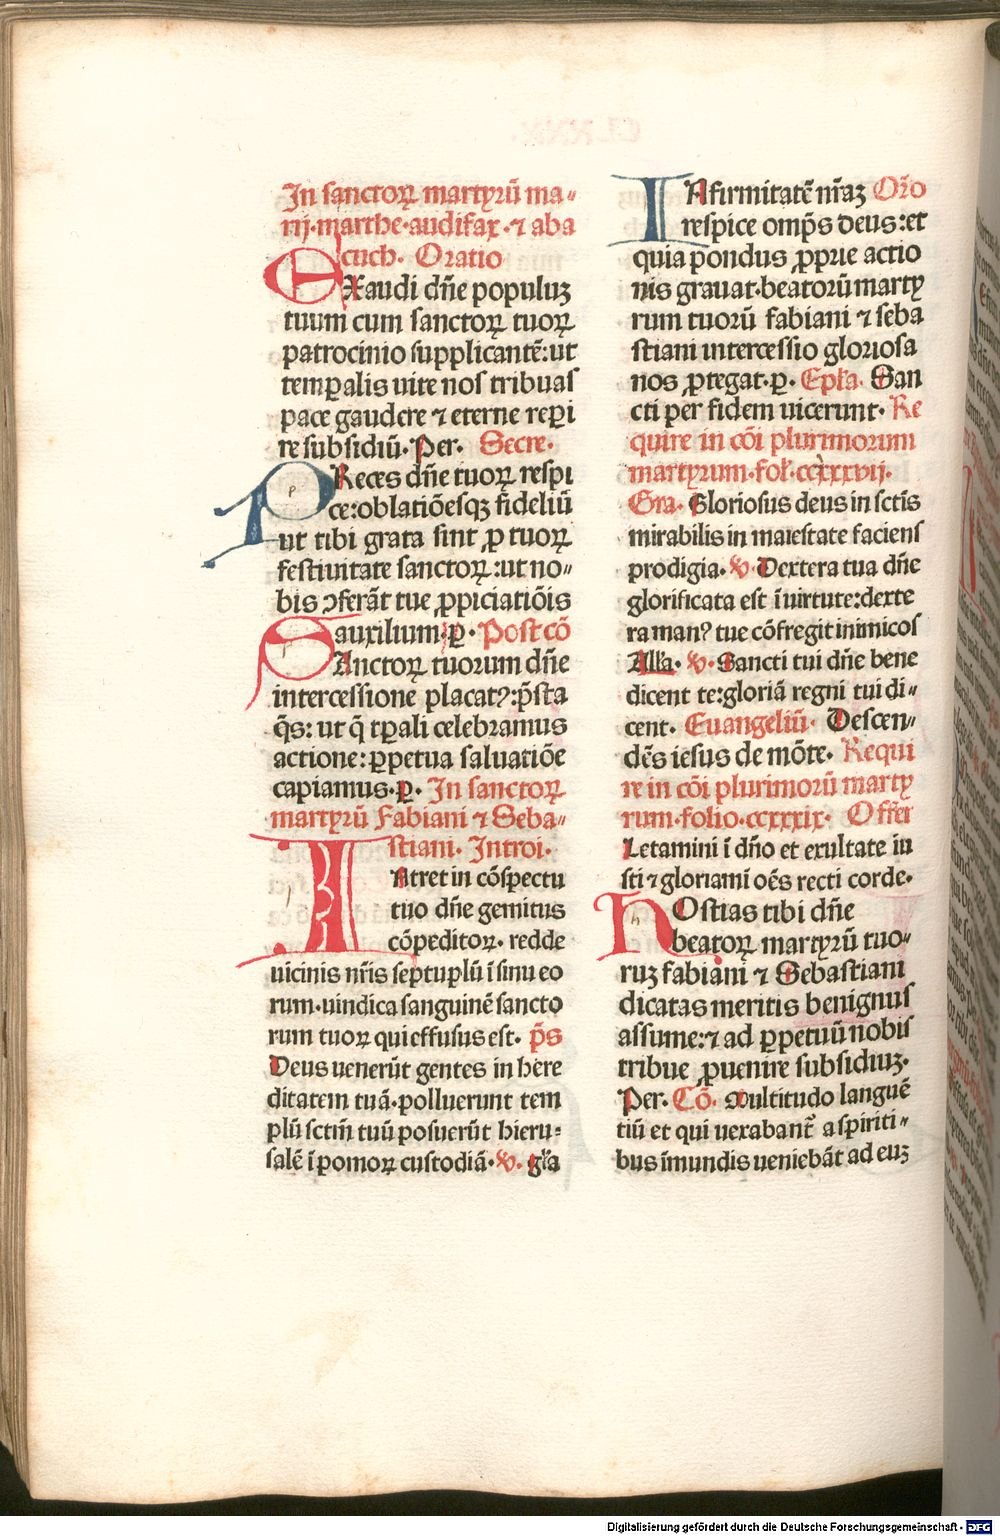 In sanctoꝝ martyrū ma-
rij·marthe·audifax·⁊ aba
cuch· Oratio
EXaudi dn̄e populuʒ
tuum cum sanctoꝝ tuoꝝ
patrocinio supplicantē:ut
temꝑalis uite nos tribuas
pace gaudere ⁊ eterne reꝑi
re subsidiū·Per· Secre·
PReces dn̄e tuoꝝ respi
ce:oblatiōesqʒ fideliū
ut tibi grata sint ꝓ tuoꝝ
festiuitate sanctoꝝ:ut no-
bis ↄferāt tue ꝓpiciatiōis
auxilium·ꝑ· Post cō
SAnctoꝝ tuorum dn̄e
intercessione placatꝰ:p̄sta
q̄s: ut q̄ tꝑali celebramus
actione:ꝑpetua saluatiōe
capiamus·ꝑ· In sanctoꝝ
martyrū Fabiani ⁊ Seba-
stiani· Introi·
INtret in cōspectu
tuo dn̄e gemitus
cōpeditoꝝ· redde
uicinis nr̄is septuplū ī sinu eo
rum·uindica sanguinē sancto
rum tuoꝝ qui effusus est· p̄s
Deus uenerūt gentes in here
ditatem tuā·polluerunt tem
plū sctm̄ tuū posuerūt hieru-
salē ī pomoꝝ custodiā·℣· gl̄a
INfirmitatē nr̄aʒ Or̄o
respice omp̄s deus:et
quia pondus ꝓprie actio
nis grauat·beatorū marty
rum tuorū fabiani ⁊ seba
stiani intercessio gloriosa
nos ꝓtegat·ꝑ· Epl̄a· San
cti per fidem uicerunt· Re
quire in cōi plurimorum
martyrum·fol·ccxxxvij·
Gra· Gloriosus deus in sctīs
mirabilis in maiestate faciens
prodigia·℣·Dextera tua dn̄e
glorificata est ī uirtute:dexte
ra manꝰ tue cōfregit inimicos
All̄a· ℣·Sancti tui dn̄e bene
dicent te:gloriā regni tui di-
cent· Euangeliū· Descen-
dēs iesus de mōte· Requi
re in cōi plurimorū marty
rum·folio·ccxxxix· Offer
Letamini ī dn̄o et exultate iu
sti ⁊ gloriamī oēs recti corde·
HOstias tibi dn̄e
beatoꝝ martyrū tuo-
ruʒ fabiani ⁊ Sebastiani
dicatas meritis benignus
assume:⁊ ad ꝑpetuū nobis
tribue ꝓuenire subsidiuʒ·
Per· Cō· Multitudo languē
tiū et qui uexabant᷑ a spiriti-
bus īmundis ueniebāt ad euʒ
Digitalisierung gefördert durch die Deutsche Forschungsgemeinschaft - DFG